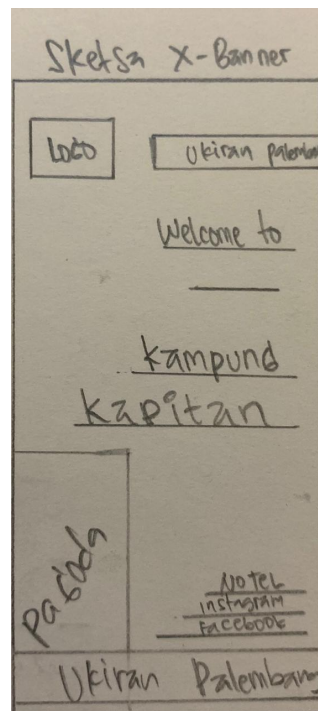 Sketsa X-Banner
LOGO
Ukiran Palemban
Welcome to
Kampung
Kapitan
Pagoda
No TEL
instagram
Facebook
Ukiran Palembang